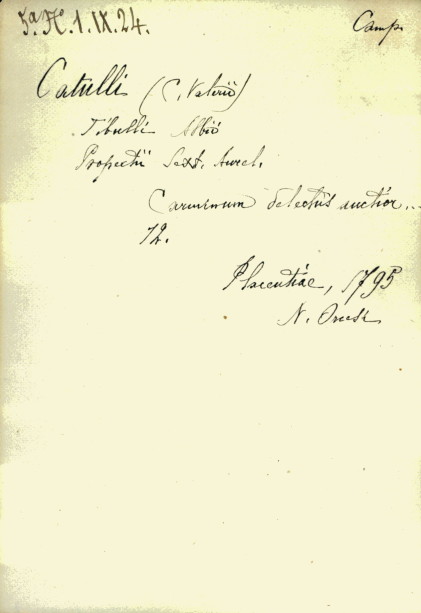 5.a H.1.IX.24.
Camp.
Catulli (C. Valerii)
Tibulli Albii
Propertii Sext. Aurel.
Carminum delectus auctior...
12.
Placentiae, 1795
N. Orcesi